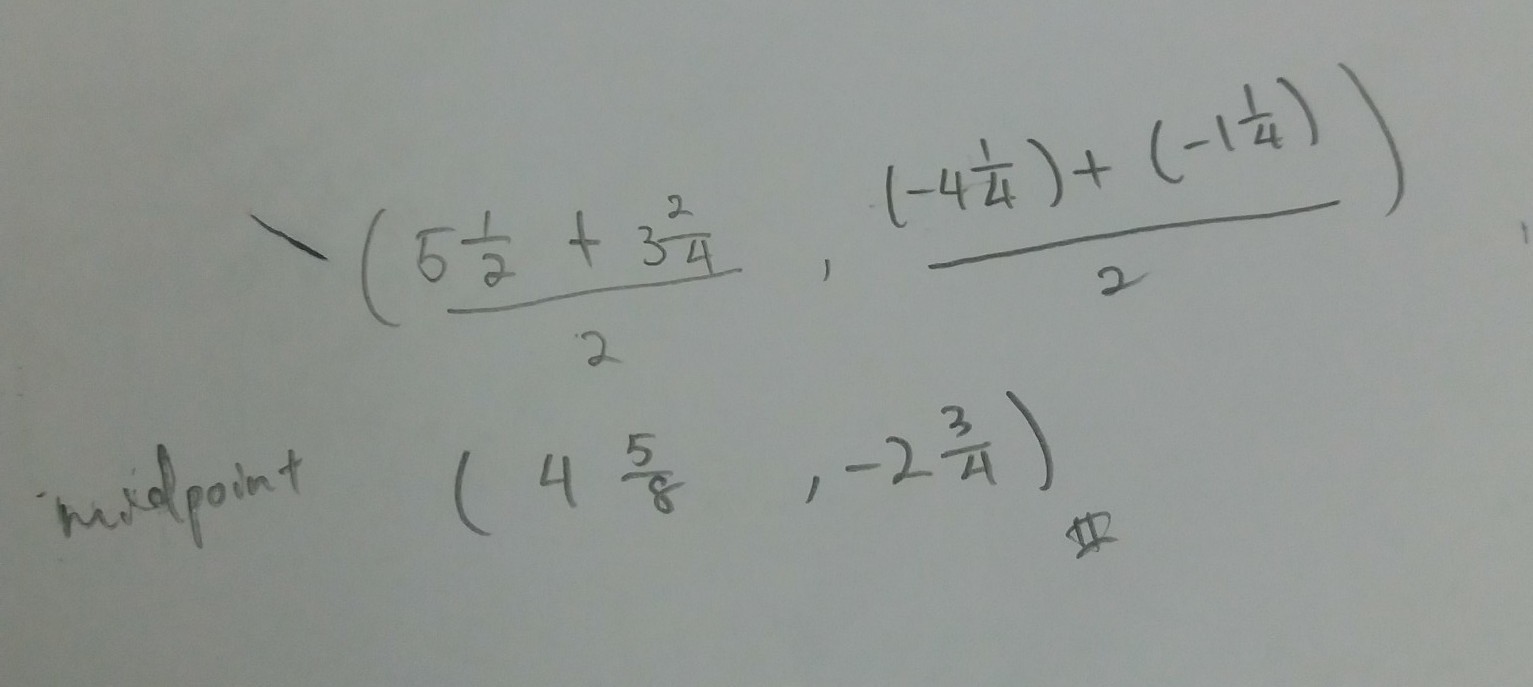 (5 1/2 + 3 2/4 / 2 , (-4 1/4) + (-1 1/4) / 2)
midpoint (4 5/8 , -2 3/4)